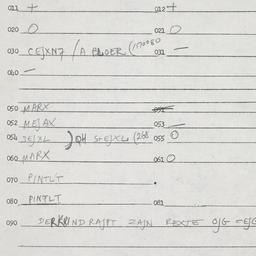 011 + 012 +
020 O 021 O
030 CEJXN7 / A BLOER (170080 031 —
040 —
050 MARX
052 MEJAX 053 —
054 JEJXL ) QH SHEJXL (268 055 O
060 MARX 061 O
070 PINTLT
080 PINTLT 081
090 DERKIND RAJPT ZAJN REXTE OJG